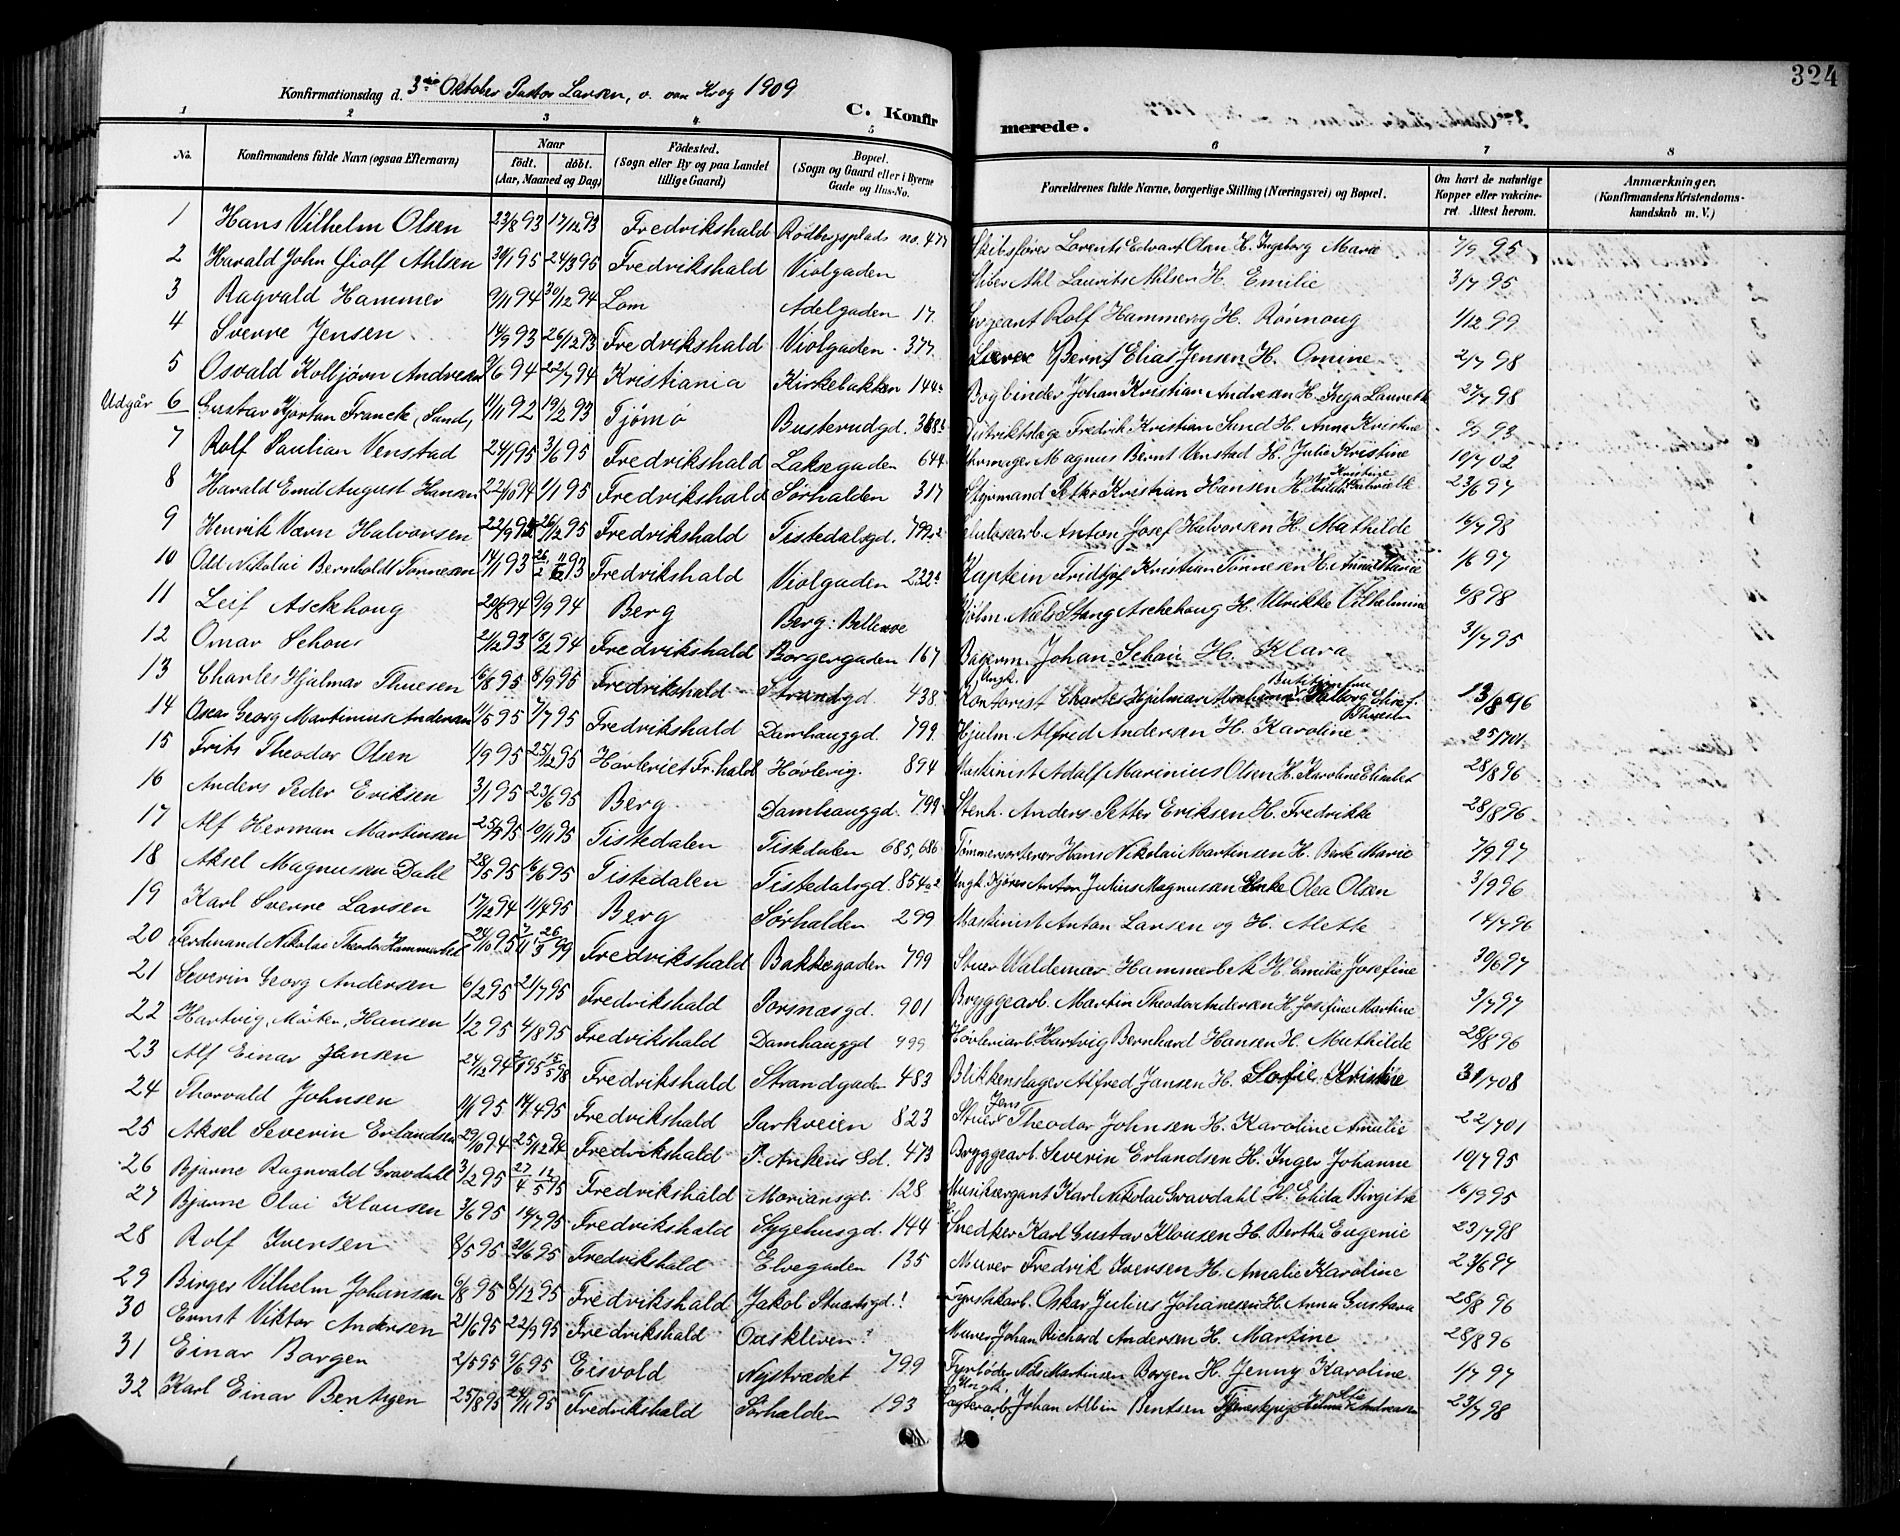 324
Konfirmationsdag d. 3die Oktober Pastor Larsen, v. van Krog 1909
C. Konfirmerede.
1 2 3 4 5 6 7 8
No. Konfirmandens fulde Navn (ogsaa Efternavn) Naar født. døbt. (Aar, Maaned og Dag) Fødested. (Sogn eller By og paa Landet tillige Gaard) Bopæl. (Sogn og Gaard eller i Byerne Gade og Hus-No. Forældrenes fulde Navne, borgerlige Stilling (Næringsvei) og Bopæl. Om havt de naturlige Kopper eller vakcineret. Attest herom. Anmærkninger. (Konfirmandens Kristendomskundskab m. V.)
1 Hans Vilhelm Olsen 23/8 93 17/12 93 Fredrikshald Rødbergsplads no. 477 Skibsfører Lorents Edvart Olsen H. Ingeborg Marie 7/9 95
2 Harald John Giolf Ahlsen 30/1 95 24/3 95 Fredrikshald Violgaden Laurits Ahlsen H. Emilie 3/7 95
3 Ragvald Hammer 9/11 94 30/12 94 Lom Adelgaden 17. Sergeant Rolf Hammer og H. Rønnoug 1/12 99
4 Sverre Jensen 14/9 93 26/12 93 Fredrikshald Violgaden 377. Bernt Elias Jensen H. Omine 2/7 98
5 Osvald Kolbjørn Andresen 9/6 94 22/7 94 Kristiania Kirkebakken 144a Bogbinder Johan Kristian Andresen H. Inga Laurette 27/7 98
Udgår 6 Gustav Kjartan Franck (Sund) 11/11 92 19/2 93 Tjømø Busterudgd. 368b Distriktslæge Fredrik Kristian Sund H. Anna Kristine 93
7 Rolf Paulian Venstad 24/1 95 3/6 95 Fredrikshald Laksegaden 644 Urmager Magnus Bernt Venstad H. Julie Kristine 10/7 02
8 Harald Emil August Hansen 22/10 94 1/1 95 Fredrikshald Sørhalden 317 Styrmand Petter Kristian Hansen H. Kristine 23/6 97
9 Henrik Værn Halvorsen 22/9 95 26/12 95 Fredrikshald Tistedalsgd. 799a2 Anton Josef Halvorsen H. Mathilde 16/7 98
10 Odd Nikolai Bernholdt Tønnesen 14/11 93 Fredrikshald Violgaden 222a Kaptein Fridtjof Kristian Tønnesen H. Anna Marie 1/6 97
11 Leif Aschhoug 20/8 94 9/9 94 Berg Berg: Bellevue Hjulm. Niels Stang Aschehoug H. Ulrikke Vilhelmine 6/8 98
12 Omar Schou 21/12 93 18/2 94 Fredrikshald Borgergaden 167 Bagerm. Johan Schou H. Klara 31/7 95
13 Charles Hjalmar Thuesen 16/8 95 8/9 95 Fredrikshald Strandgd. 438 Ungk. Kontorist Charles Hjalmar Thuesen 13/8 96
14 Oscar Georg Martinius Andersen 11/5 95 7/7 95 Fredrikshald Damhauggd. 799. Hjulm. Alfred Andersen H. Karoline 25/7 01
15 Frits Theodor Olsen 1/9 95 25/12 95 Høvleriet Fr.hald Høvlerig. 894 Maskinist Adolf Marinius Olsen H. Karoline Elisabet 28/8 96
16 Anders Peder Eriksen 3/1 95 23/6 95 Berg Damhauggd. 799 Stenh. Anders Petter Eriksen H. Fredrikke 28/8 96
17 Alf Herman Martinsen 25/9 95 10/11 95 Tistedalen Tistedalen 685, 686 Tømmersorterer Hans Nikolai Martinsen H. Berte Marie 7/9 97
18 Aksel Magnussen Dahl 28/5 95 16/6 95 Tistedalen Tistedalsgd. 854a2 Ungk. Kjører Anton Julius Magnussen Enke Olea Olsen 3/9 96
19 Karl Sverre Larsen 17/12 94 11/4 95 Berg Sørhalden 299 Maskinist Anton Larsen og H. Alette 14/7 96
20 Ferdinand Nikolai Theodor Hammerbek 24/10 95 Fredrikshald Bakkegaden 799 Stuer Waldemar Hammerbek H. Emilie Josefine 30/6 97
21 Severin Georg Andersen 6/2 95 21/7 95 Fredrikshald Porsnæsgd. 901 Bryggearb. Martin Theodor Andersen H. Josefine Martine 3/7 97
22 Hartvig, Morten, Hansen 1/2 95 4/8 95 Fredrikshald Damhauggd 799 Høvleriarb. Hartvig Bernhard Hansen H. Mathilde 28/8 96
23 Alf Einar Jansen 24/12 94 Fredrikshald Strandgaden 483 Blikkenslager Alfred Jansen H. Sofie Kristine 31/7 08
24 Thorvald Johnsen 1/1 95 14/4 95 Fredrikshald Parkveien 823 Stuer Jens Theodor Johnsen H. Karoline Amalie 22/7 01
25 Aksel Severin Erlandsen 29/10 94 25/12 94 Fredrikshald P. Ankers Gd. 473 Bryggearb. Severin Erlandsen H. Inger Johanne 10/7 95
26 Bjarne Ragnvald Gravdahl 3/2 95 27/4 12/5 95 Fredrikshald Moriansgd. 128 Musiksergant Karl Nikolai Gravdahl H. Elida Birgitte 16/9 95
27 Bjarne Olai Klausen 3/6 95 14/7 95 Fredrikshald Sygehusgd. 144 Snedker Karl Gustav Klausen H. Bertha Eugenie 23/7 98
28 Rolf Iversen 8/5 95 30/6 95 Fredrikshald Elvegaden 135 Murer Fredrik Iversen H. Amalie Karoline 23/6 97
29 Birger Vilhelm Johansen 6/8 95 8/12 95 Fredrikshald Jakol Stuartsgd. Oskar Julius Johanesen H. Anna Gustava 28/8 96
30 Ernst Viktor Andersen 21/6 95 22/9 95 Fredrikshald Oaskleven Murer Johan Richard Andersen H. Martine 28/8 96
31 Einar Borgen 2/5 95 9/6 95 Eisvold Nystrædet 799 Fyrbøder Nils Martinsen Borgen H. Jenny Karoline 1/7 97
32 Karl Einar Bentsen 25/8 95 24/11 95 Fredrikshald Sørhalden 193 Ungk. Johan Albin Bentsen Tjenestpige Hilma Andreasen 23/7 98